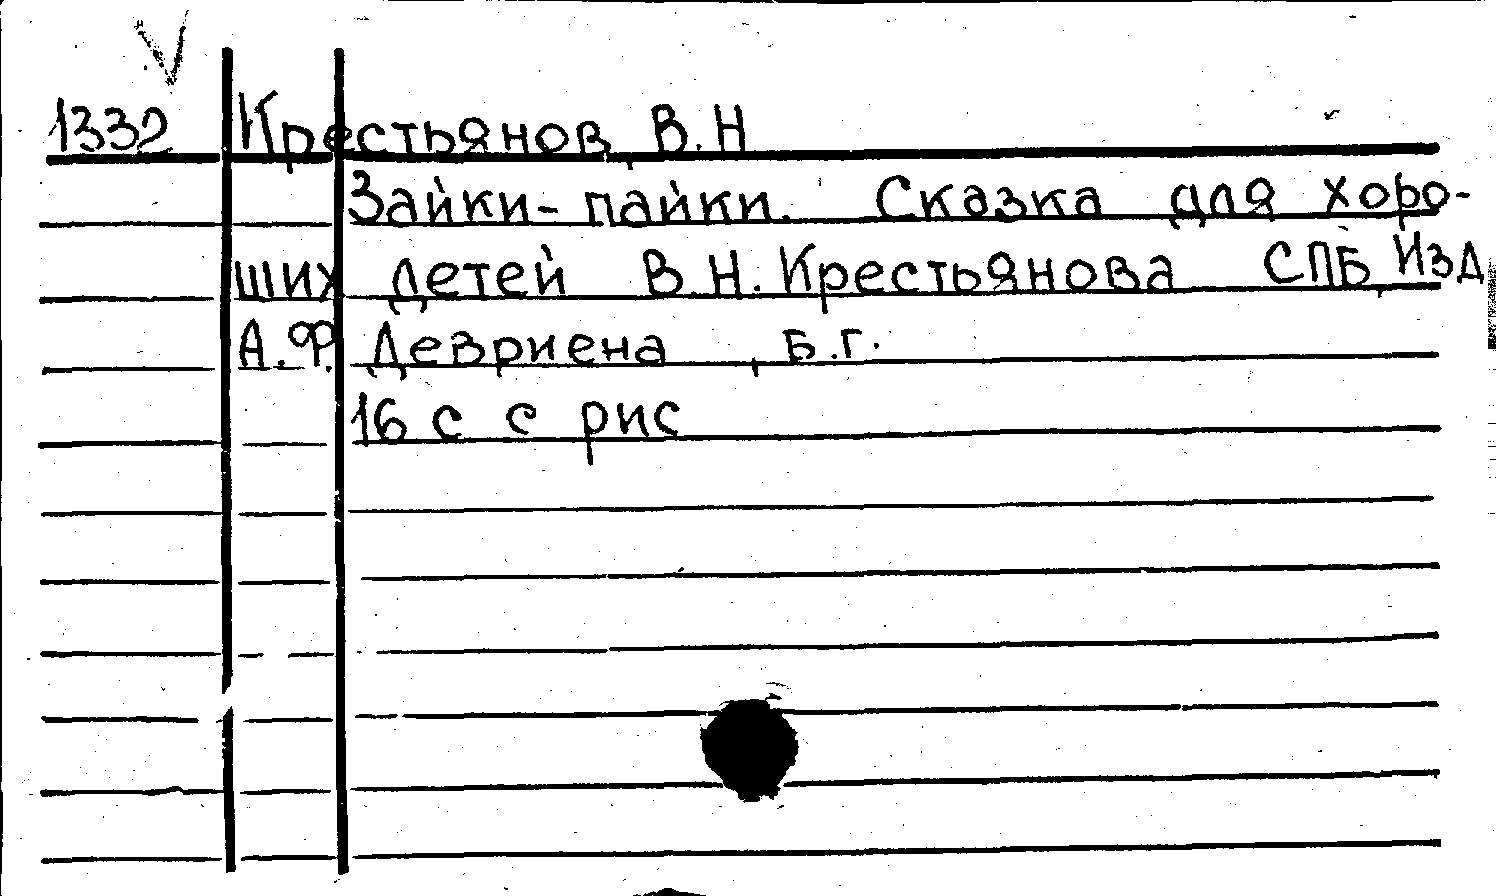 1332 Крестьянов, В.Н
Зайки-пайки. Сказка для хоро-
ших детей В.Н.Крестьянова СПБ, Изд
А.Ф. Девриена , Б.г.
16 с с рис